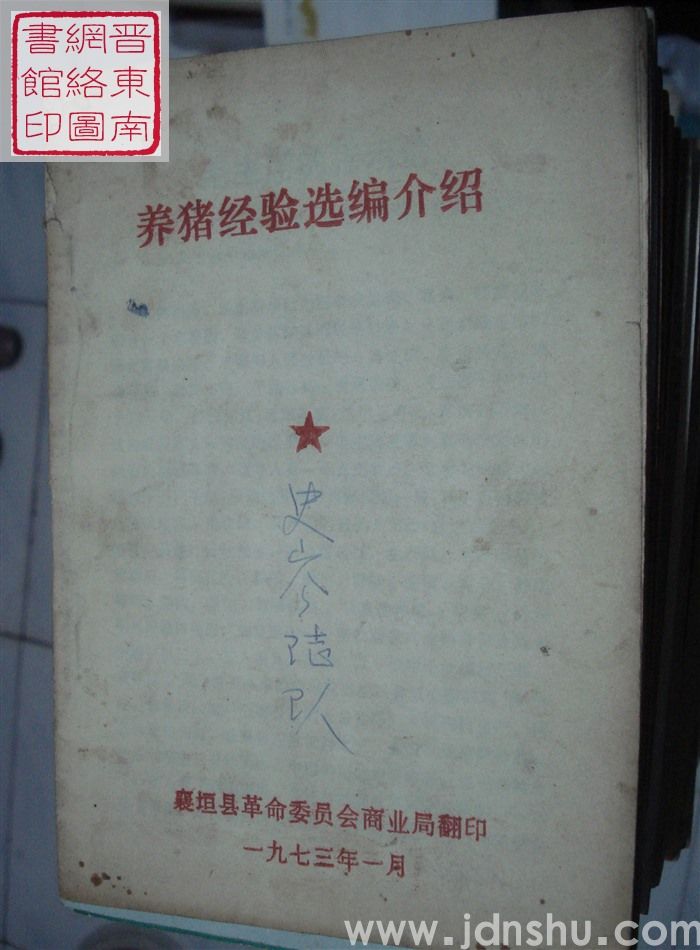 晋東南
網絡圖
書館印
养猪经验选编介绍
史
队
襄垣县革命委员会商业局翻印
一九七三年一月
www.jdnshu.com